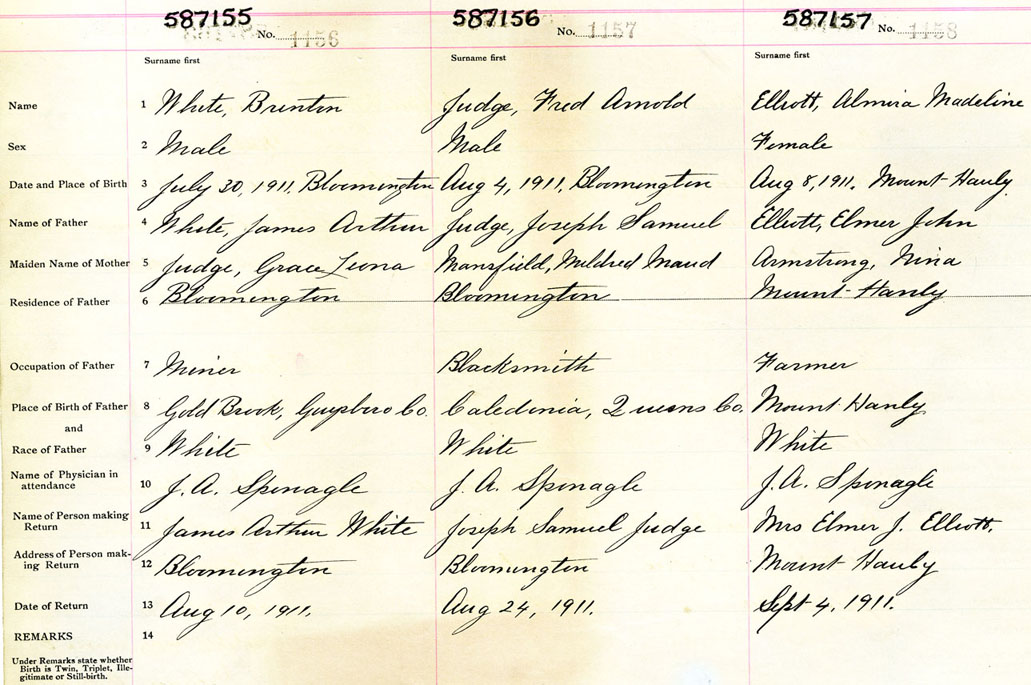 587155 No. 1156 587156 No. 1157 587157 No. 1158
Surname first Surname first Surname first
Name 1 White, Brenton Judge, Fred Arnold Elliott, Almira Madeline
Sex 2 Male Male Female
Date and Place of Birth 3 July 30, 1911, Bloomington Aug 4, 1911, Bloomington Aug 8, 1911. Mount Hanly
Name of Father 4 White, James Arthur Judge, Joseph Samuel Elliott, Elmer John
Maiden Name of Mother 5 Judge, Grace Leona Mansfield, Mildred Maud Armstrong, Nina
Residence of Father 6 Bloomington Bloomington Mount Hanly
Occupation of Father 7 Miner Blacksmith Farmer
Place of Birth of Father 8 Gold Brook, Guysboro Co. Caledonia, Queens Co. Mount Hanly
and
Race of Father 9 White White White
Name of Physician in
attendance 10 J. A. Sponagle J. A. Sponagle J. A. Sponagle
Name of Person making
Return 11 James Arthur White Joseph Samuel Judge Mrs Elmer J. Elliott.
Address of Person mak-
ing Return 12 Bloomington Bloomington Mount Hanly
Date of Return 13 Aug 10, 1911. Aug 24, 1911. Sept 4, 1911.
REMARKS 14
Under Remarks state whether
Birth is Twin, Triplet, Ille-
gitimate or Still-birth.